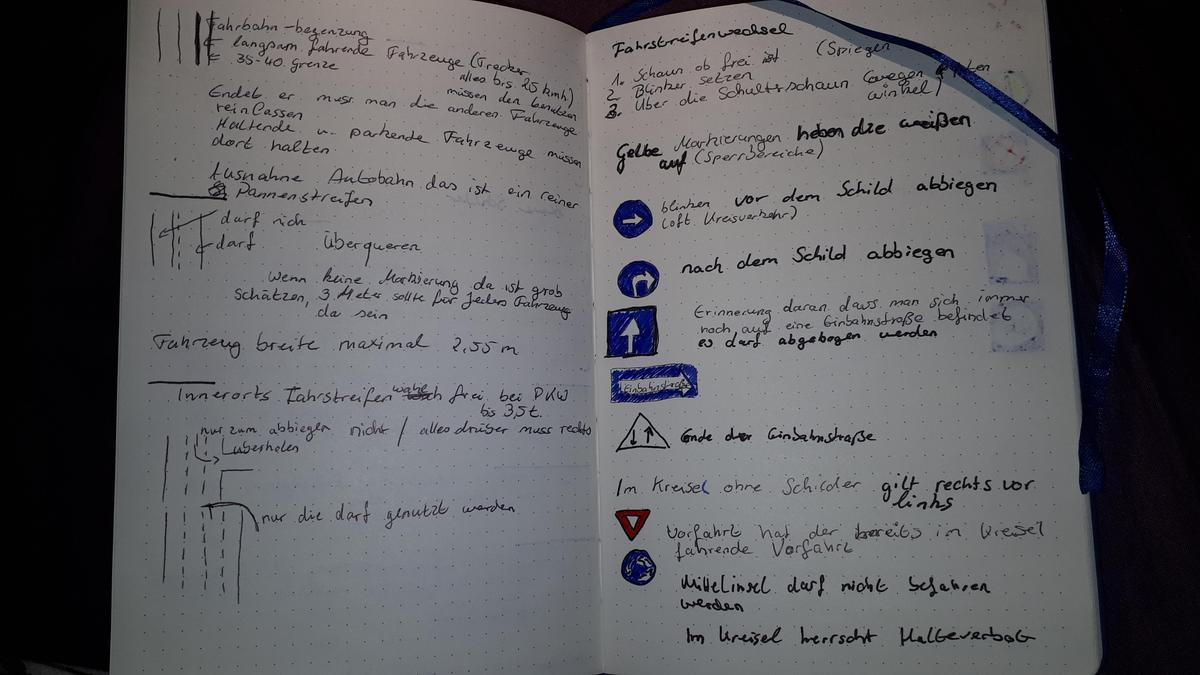 Fahrbahn-begenzung
langsam fahrende Fahrzeuge (Trecker
35-40 grenze alles bis 25 kmh)
müssen den benutzen
Endet er muss man die anderen Fahrzeuge
reinlassen
Haltende u. parkende Fahrzeuge müssen
dort halten
Ausnahme Autobahn das ist ein reiner
Pannenstreifen
darf nich
darf überqueren
wenn keine Markierung da ist grob
schätzen, 3 Meter sollte für jedes Fahrzeug
da sein
Fahrzeug breite maximal 2,55 m
Innerorts Fahrstreifen wahl frei bei PKW
bis 3,5t.
nur zum abbiegen nicht / alles drüber muss rechts
überholen
nur die darf genutzt werden
Fahrstreifenwechsel
1. Schaun ob frei ist (Spiegen
2. Blinker setzen
3. Über die Schultsschaun (wegen
winkel)
Gelbe Markierungen heben die weißen
auf (Sperrbereiche)
blinken vor dem Schild abbiegen
(oft Kreisverkehr)
nach dem Schild abbiegen
Erinnerung daran dass man sich immer
noch auf eine Einbahnstraße befindet
es darf abgebogen werden
Einbahnstraße
Ende der Einbahnstraße
Im Kreisel ohne Schilder gilt rechts vor
links
Vorfahrt hat der bereits im Kreisel
fahrende Vorfahrt
Mittelinsel darf nicht befahren
werden
Im Kreisel herrscht Halteverbot